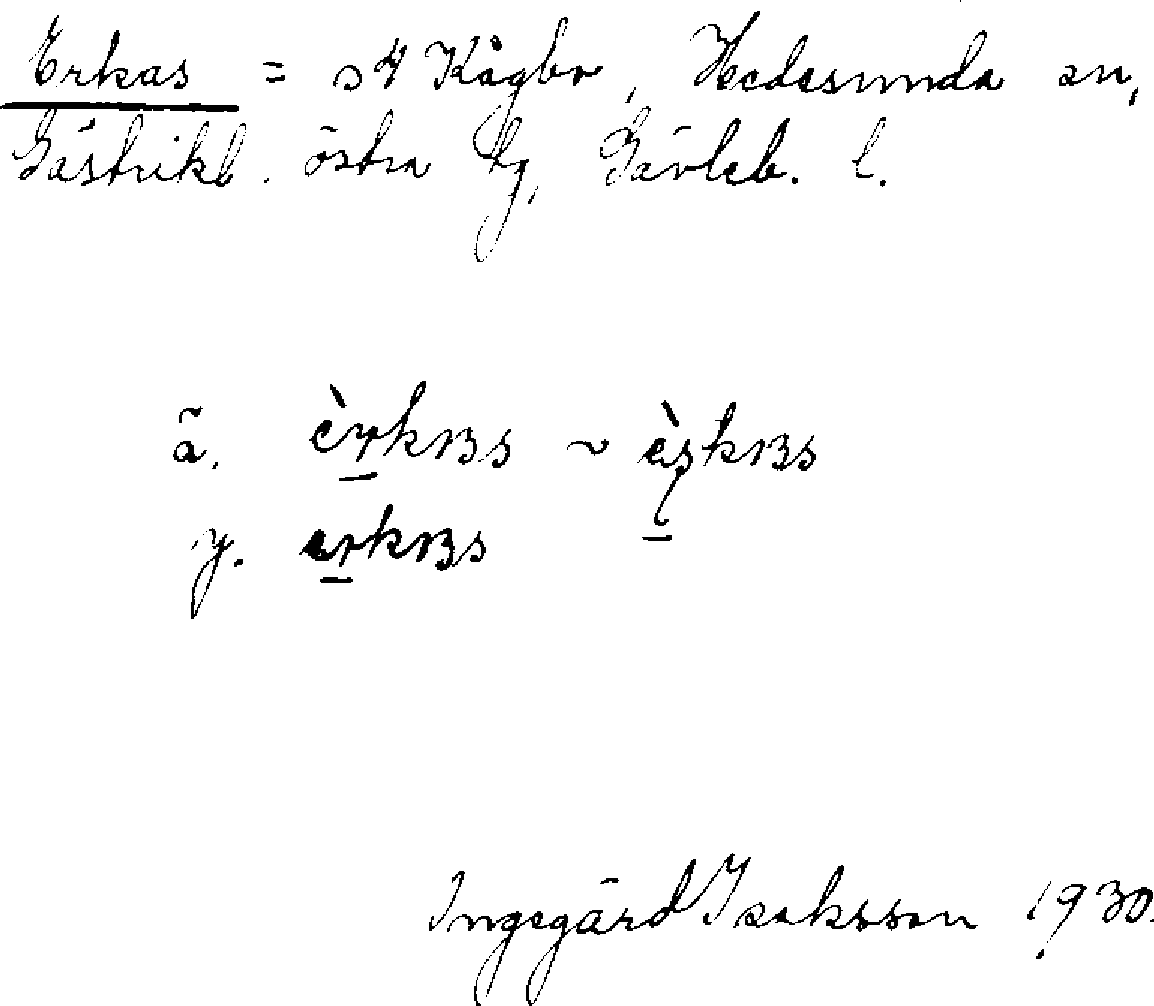 Erkas = s4 Kågbo, Hedesunda sn,
Gästrikl. östra tg, Gävleb. l.
ä.
y.
Ingegärd Isaksson 1930.